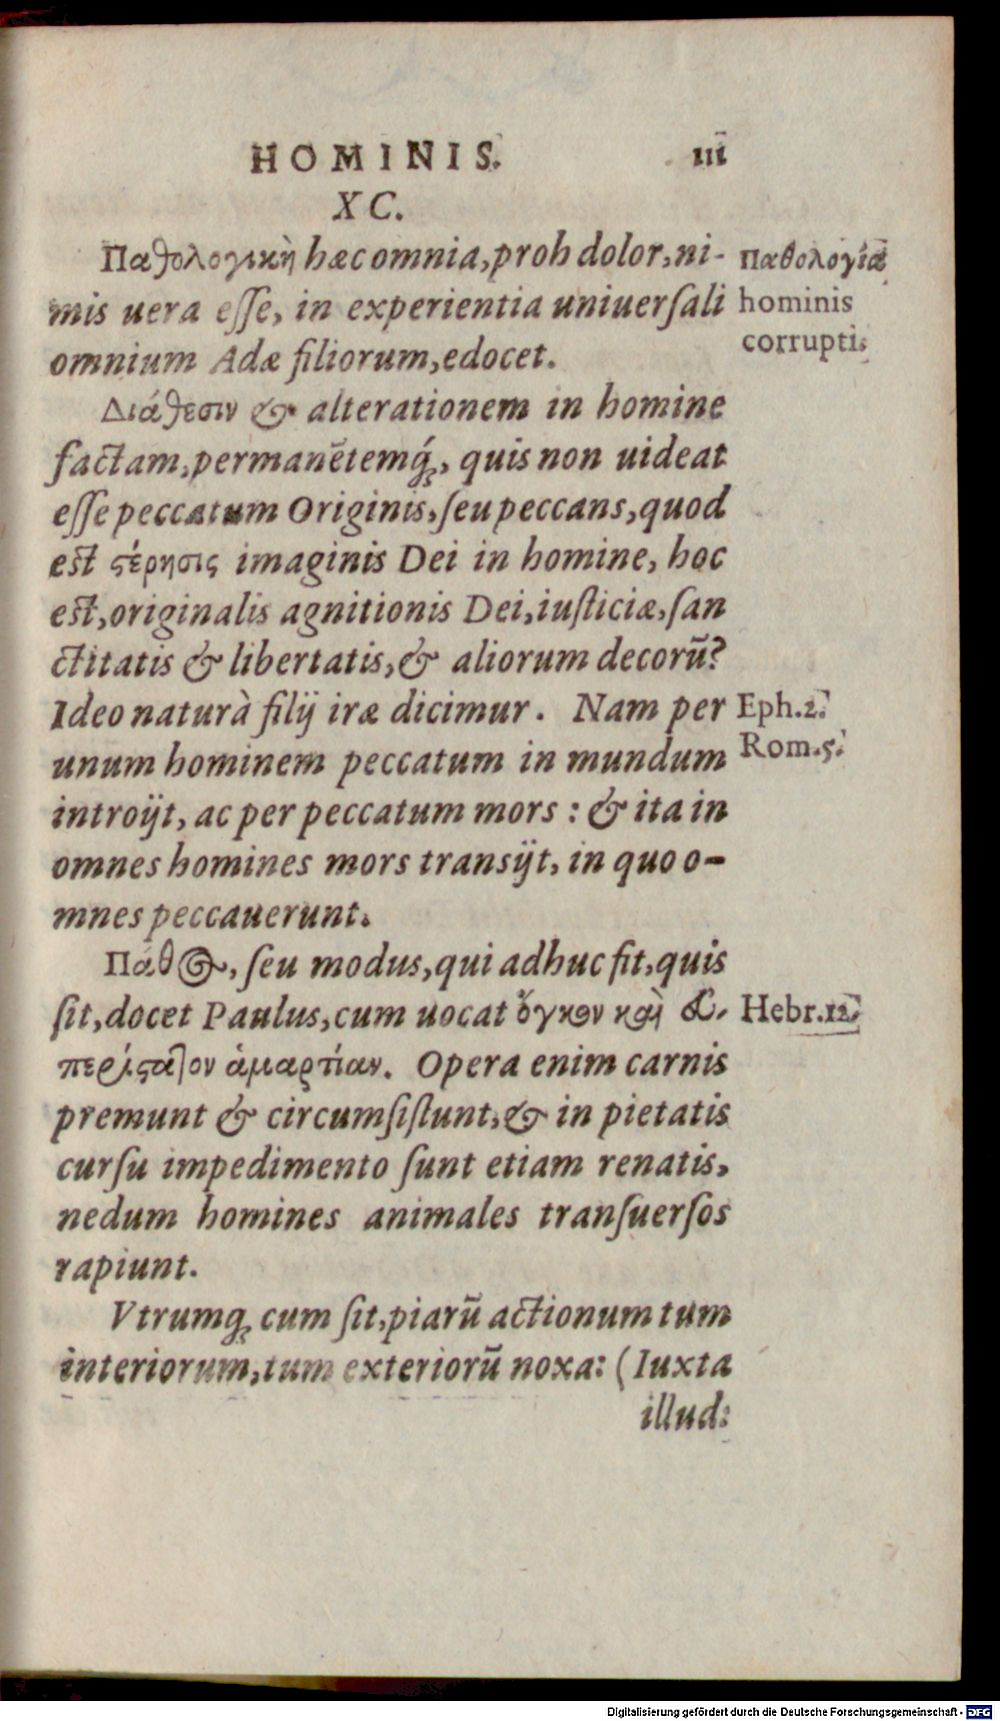 HOMINIS. 111
XC.
Παθολογικὴ hæc omnia, proh dolor, ni-
mis uera esse, in experientia uniuersali
omnium Adæ filiorum, edocet.
Παθολογία
hominis
corrupti.
Διάθεσιν & alterationem in homine
factam, permanẽtemq́;, quis non uideat
esse peccatum Originis, seu peccans, quod
est ςέρησις imaginis Dei in homine, hoc
est, originalis agnitionis Dei, iusticiæ, san
ctitatis & libertatis, & aliorum decorũ?
Ideo naturà filij iræ dicimur. Nam per
unum hominem peccatum in mundum
introijt, ac per peccatum mors: & ita in
omnes homines mors transijt, in quo o-
mnes peccauerunt.
Eph.2.
Rom.5.
Πάθος, seu modus, qui adhuc fit, quis
sit, docet Paulus, cum uocat ὄγκον καὶ εὐ-
περίςατον ἁμαρτίαν. Opera enim carnis
premunt & circumsistunt, & in pietatis
cursu impedimento sunt etiam renatis,
nedum homines animales transuersos
rapiunt.
Hebr.12.
Vtrumq; cum sit, piarũ actionum tum
interiorum, tum exteriorũ noxa: (Iuxta
illud:
Digitalisierung gefördert durch die Deutsche Forschungsgemeinschaft - DFG